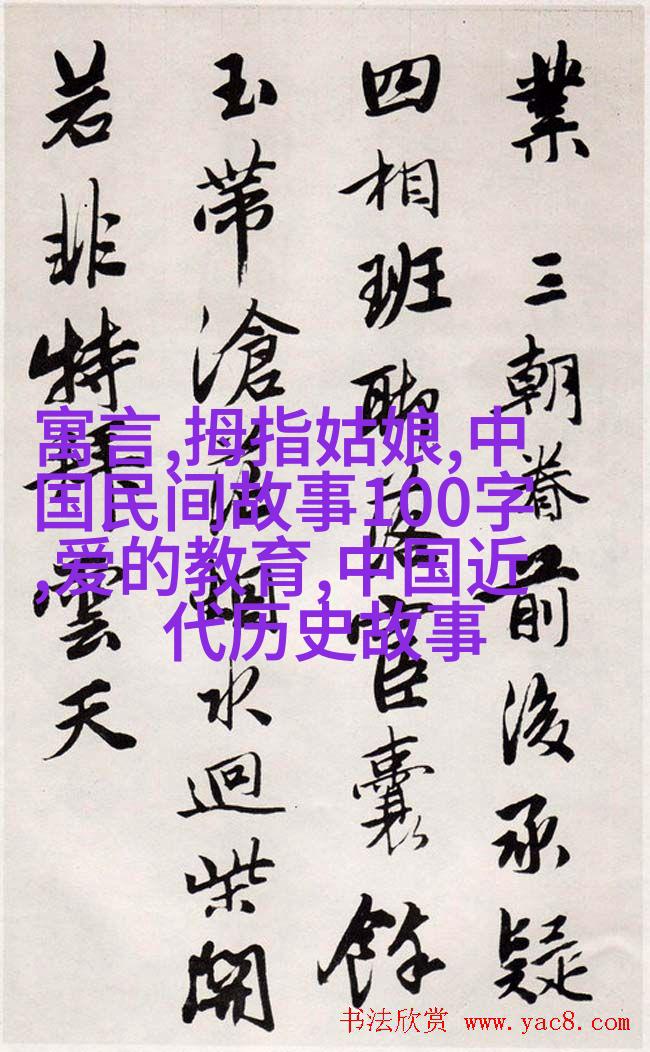 業 三朝眷前後承疑
四相班聯落宦囊餘
玉帶滄水迴柴開
若非特雲天
寓言,拇指姑娘,中
国民间故事100字
,爱的教育,中国近
代历史故事
书法欣赏 www.yac8.com